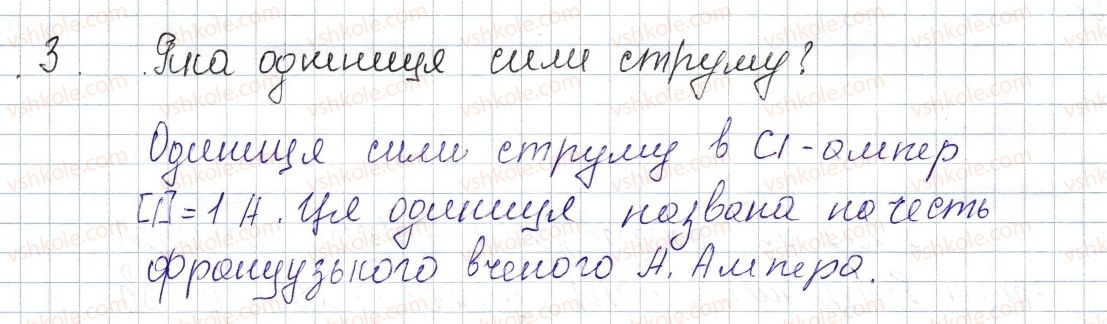 3. Яка одиниця сили струму?
Одиниця сили струму в СІ - ампер
[I] = 1 А. Ця одиниця названа на честь
французького вченого А. Ампера.